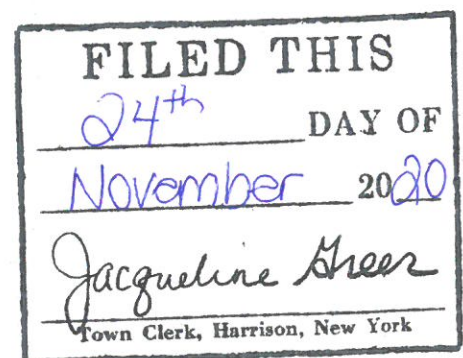 FILED THIS
24th DAY OF
November 2020
Jacqueline Greer
Town Clerk, Harrison, New York